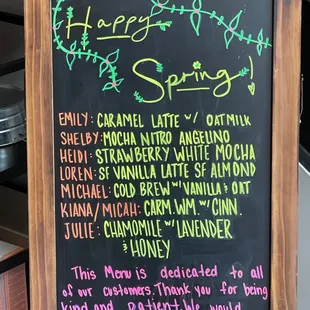 Happy
Spring!
EMILY: CARAMEL LATTE W/ OATMILK
SHELBY: MOCHA NITRO ANGELINO
HEIDI: STRAWBERRY WHITE MOCHA
LOREN: SF VANILLA LATTE SF ALMOND
MICHAEL: COLD BREW W/ VANILLA & OAT
KIANA/MICAH: CARM. WM. W/ CINN.
JULIE: CHAMOMILE W/ LAVENDER
& HONEY
This Menu is dedicated to all
of our customers. Thank you for being
kind and patient. We would